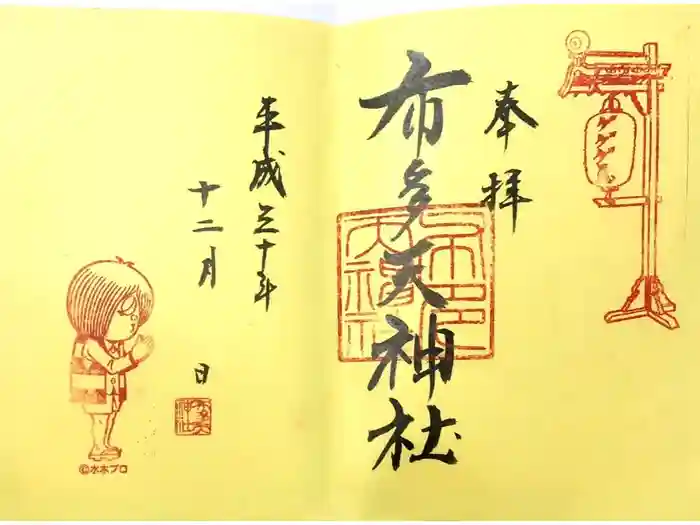 奉拝
布多天神社
平成三十年
十二月
日
ゲゲゲ
©水木プロ